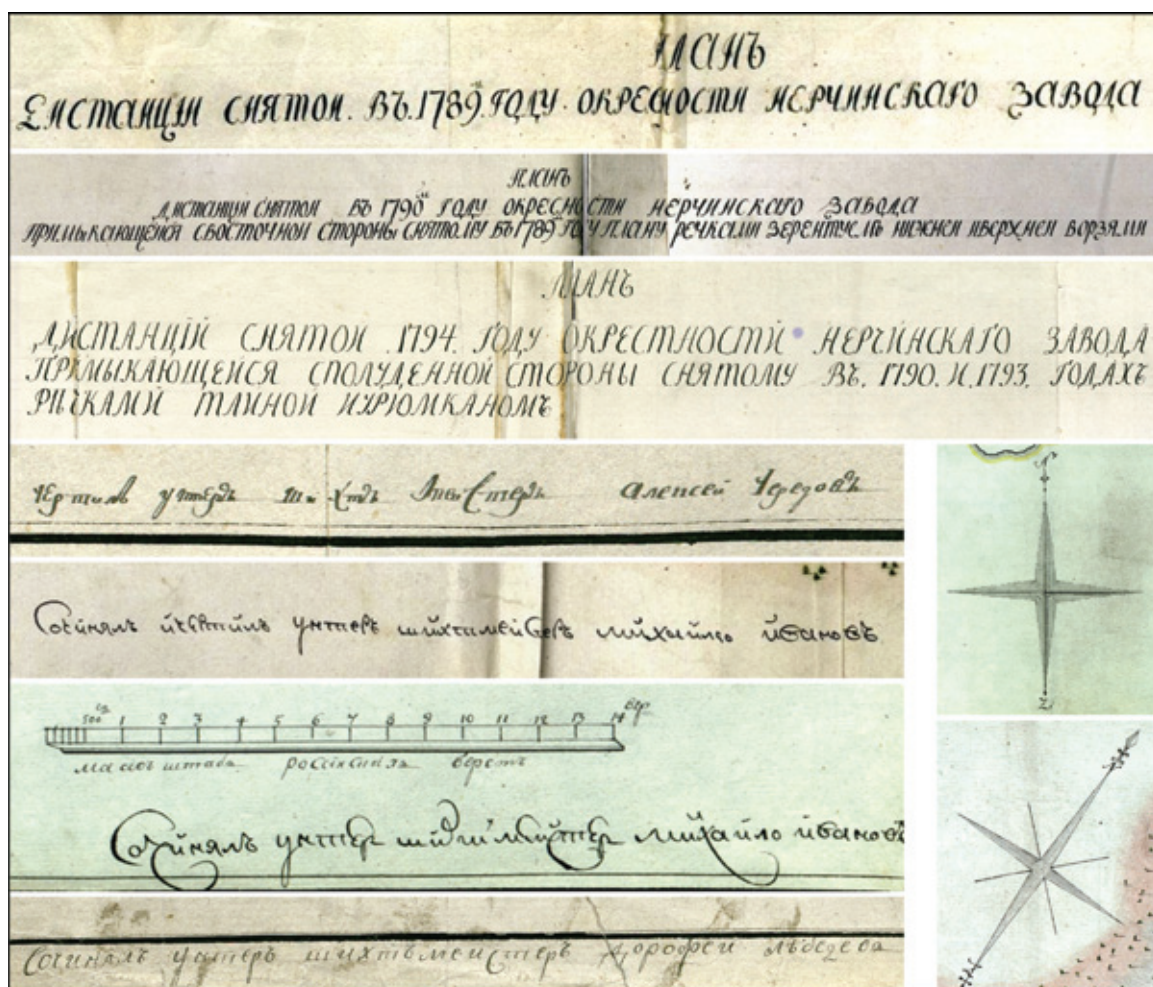 ПЛАНЪ
ДИСТАНЦІИ СНЯТОИ. ВЪ. 1789. ГОДУ. ОКРЕСНОСТИ НЕРЧИНСКАГО ЗАВОДА
ПЛАНЪ
ДИСТАНЦИИ СНЯТОИ ВЪ 1790 ГОДУ ОКРЕСНОСТИ НЕРЧИНСКАГО ЗАВОДА
ПРИМЫКАЮЩЕИСЯ СВОСТОЧНОИ СТОРОНЫ СНЯТОМУ ВЪ 1789 ГОДУ ПЛАНУ РЕЧКАМИ ЗЕРЕНТУЕМЪ НИЖНЕИ ИВЕРХНЕИ БОРЗЯМИ
ПЛАНЪ
ДИСТАНЦІЙ СНЯТОИ .1794. ГОДУ ОКРЕСТНОСТИ НЕРЧИНСКАГО ЗАВОДА
ПРИМЫКАЮЩЕЙСЯ СПОЛУДЕННОЙ СТОРОНЫ СНЯТОМУ ВЪ. 1790. И. 1793. ГОДАХЪ
РѢЧКАМИ ТАИНОЙ ИУРЮМКАНОМЪ
Чертилъ унтеръ Алексей Чередовъ
Сочинялъ ичертилъ унтеръ шихтмейстеръ михайло ивановъ
500 1 2 3 4 5 6 7 8 9 10 11 12 13 14 вер
масштабъ российскихъ верстъ
Сочинялъ унтеръ шихтмейстер михайло ивановъ
Сочинялъ унтеръ шихтъмеистеръ дорофеи лѣбедевъ